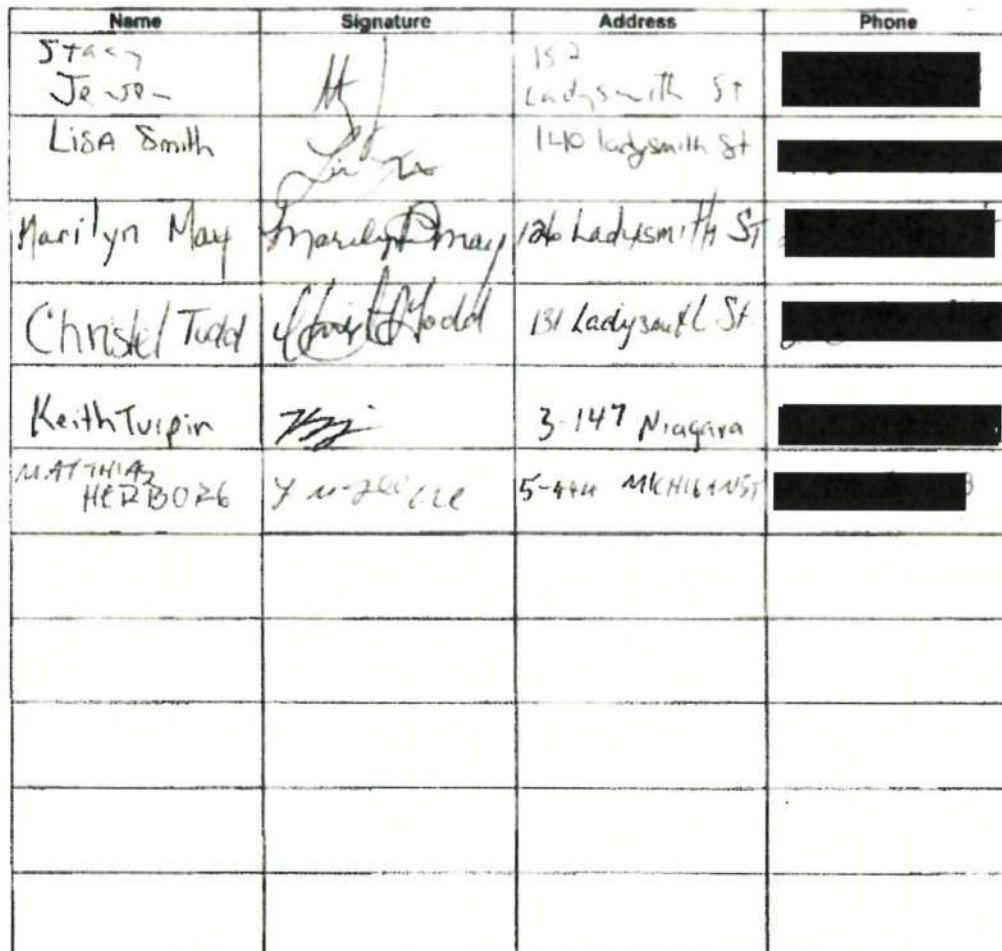 Name Signature Address Phone
Stacy 152
Ladysmith St
LISA Smith 140 ladysmith St
Marilyn May Marilyn May 126 Ladysmith ST
Christel Todd Todd 131 Ladysmith St.
Keith Turpin 3-147 Niagara
MATTHIAS
HERBORG 5-444 MICHIGAN ST